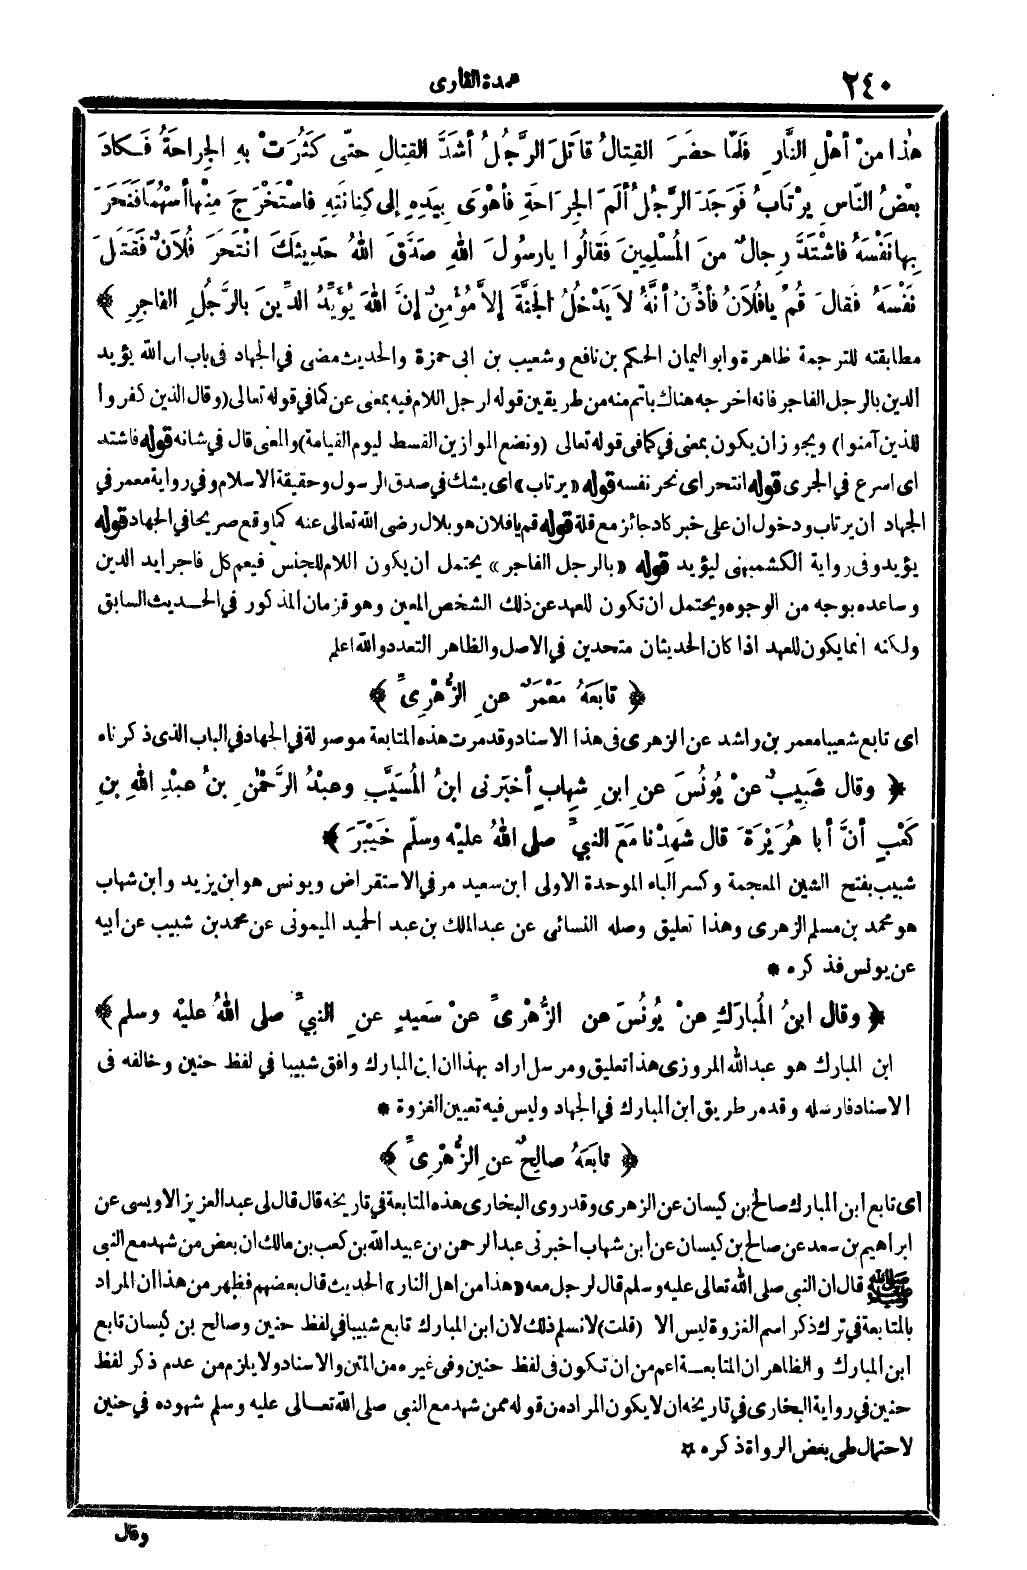 ٢٤٠
عمدة القارى
هٰذا مِنْ أهْلِ النَّارِ فَلَمّا حضَرَ القِتالُ قاتَلَ الرَّجُلُ أشَدَّ القِتالِ حتّى كَثُرَتْ بِهِ الجِراحَةُ فَكادَ
بَعْضُ النّاسِ يرْتابُ فَوَجَدَ الرَّجُلُ ألَمَ الجِرَاحَةِ فأهْوَى بِيَدِهِ إلى كِنانَتِهِ فاسْتَخْرَجَ مِنْها أسْهُمًا فَنَحَرَ
بِها نَفْسَهُ فاشْتَدَّ رِجالٌ مِنَ المُسْلِمِينَ فَقالُوا يا رسُولَ اللهِ صَدَّقَ اللهُ حَدِيثَكَ انْتَحَرَ فُلاَنٌ فَقَتَلَ
نَفْسَهُ فَقالَ قُمْ يا فُلاَنُ فأذِّنْ أنَّهُ لاَ يَدْخُلُ الجَنَّةَ إلاَّ مُؤْمِنٌ إنَّ اللهَ يُؤَيِّدُ الدِّينَ بالرَّجُلِ الفاجِرِ ﴾
مطابقته للترجمة ظاهرة وابو اليمان الحكم بن نافع وشعيب بن ابى حمزة والحديث مضى في الجهاد فى باب ان الله يؤيد
الدين بالرجل الفاجر فانه اخرجه هناك باتم منه من طريقين قوله لرجل اللام فيه بمعنى عن كما في قوله تعالى (وقال الذين كفروا
للذين آمنوا) ويجوز ان يكون بمعنى في كما فى قوله تعالى (ونضع الموازين القسط ليوم القيامة) والمعنى قال في شانه قوله فاشتد
اى اسرع في الجرى قوله انتحر اى نحر نفسه قوله «يرتاب» اى يشك في صدق الرسول وحقيقة الاسلام وفي رواية معمر في
الجهاد ان يرتاب ودخول ان على خبر كاد جائز مع قلة قوله قم يا فلان هو بلال رضى الله تعالى عنه كما وقع صريحا في الجهاد قوله
يؤيد وفى رواية الكشميهنى ليؤيد قوله «بالرجل الفاجر» يحتمل ان يكون اللام للجنس فيعم كل فاجر ايد الدين
وساعده بوجه من الوجوه ويحتمل ان تكون للعهد عن ذلك الشخص المعين وهو قزمان المذكور في الحديث السابق
ولكنه انما يكون للعهد اذا كان الحديثان متحدين في الاصل والظاهر التعدد والله اعلم
﴿ تابَعَهُ مَعْمَرٌ عنِ الزُّهْرِىِّ ﴾
اى تابع شعيبا معمر بن راشد عن الزهرى فى هذا الاسناد وقد مرت هذه المتابعة موصولة في الجهاد في الباب الذى ذكرناه
﴿ وقال شَبِيبٌ عنْ يُونُسَ عنِ ابنِ شِهابٍ أخبَرَنى ابنُ المُسَيَّبِ وعبْدُ الرَّحْمٰنِ بنُ عبْدِ اللهِ بنِ
كَعْبٍ أنَّ أبا هُرَيْرَةَ قال شَهِدْنا مَعَ النبيِّ صلى اللهُ عليْه وسلّم خَيْبَرَ ﴾
شبيب بفتح الشين المعجمة وكسر الباء الموحدة الاولى ابن سعيد مر في الاستقراض ويونس هو ابن يزيد وابن شهاب
هو محمد بن مسلم الزهرى وهذا تعليق وصله النسائى عن عبد الملك بن عبد الحميد الميمونى عن محمد بن شبيب عن ابيه
عن يونس فذكره ❋
﴿ وقال ابنُ المُبارَكِ عنْ يُونُسَ عنِ الزُّهْرىِّ عنْ سَعِيدٍ عنِ النبيِّ صلى اللهُ عليْه وسلم ﴾
ابن المبارك هو عبد الله المروزى هذا تعليق ومرسل اراد بهذا ان ابن المبارك وافق شبيبا في لفظ حنين وخالفه فى
الاسناد فارسله وقد مر طريق ابن المبارك في الجهاد وليس فيه تعيين الغزوة ❋
﴿ تابَعَهُ صالِحٌ عنِ الزُّهْرِىِّ ﴾
اى تابع ابن المبارك صالح بن كيسان عن الزهرى وقد روى البخارى هذه المتابعة في تاريخه قال قال لى عبد العزيز الاويسى عن
ابراهيم بن سعد عن صالح بن كيسان عن ابن شهاب اخبرنى عبد الرحمن بن عبيد الله بن كعب بن مالك ان بعض من شهد مع النبى
ﷺ قال ان النبى صلى الله تعالى عليه وسلم قال لرجل معه «هذا من اهل النار» الحديث قال بعضهم فظهر من هذا ان المراد
بالمتابعة في ترك ذكر اسم الغزوة ليس الا (قلت) لا نسلم ذلك لان ابن المبارك تابع شبيبا في لفظ حنين وصالح بن كيسان تابع
ابن المبارك والظاهر ان المتابعة اعم من ان تكون فى لفظ حنين وفى غيره من المتن والاسناد ولا يلزم من عدم ذكر لفظ
حنين في رواية البخارى في تاريخه ان لا يكون المراد من قوله ممن شهد مع النبى صلى الله تعالى عليه وسلم شهوده في حنين
لاحتمال طى بعض الرواة ذكره ❋
وقال